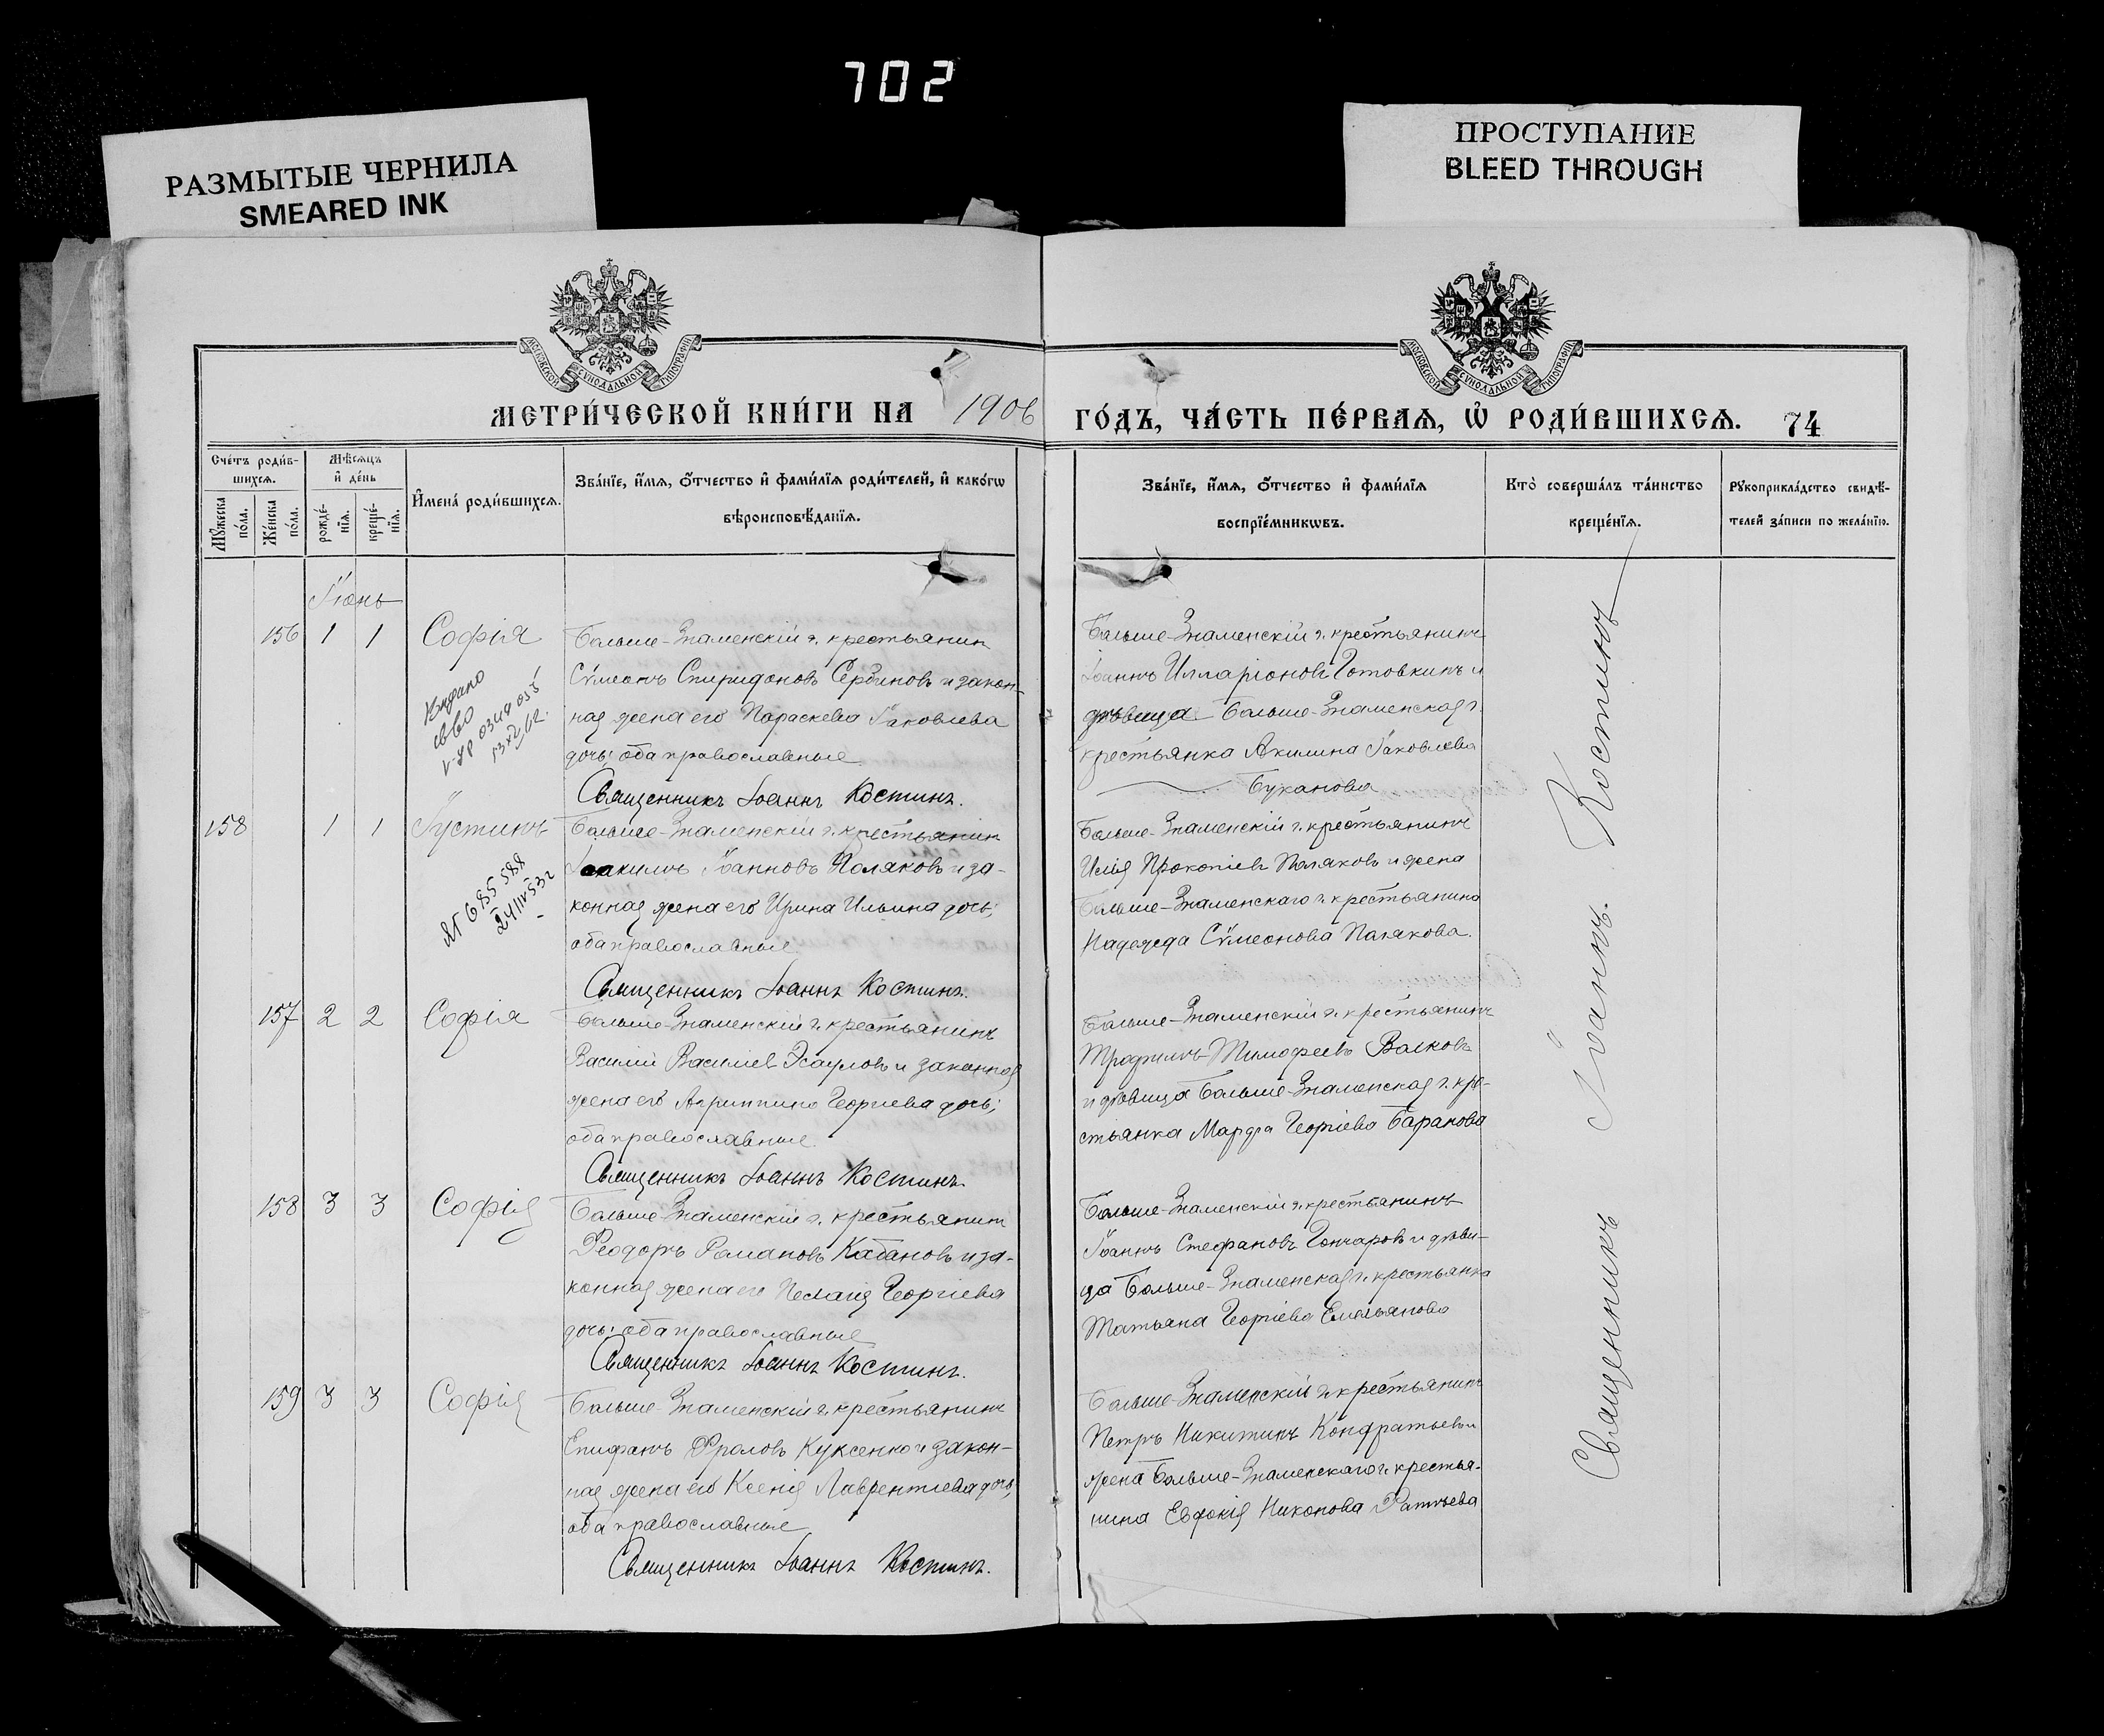 702
РАЗМЫТЫЕ ЧЕРНИЛА
SMEARED INK
ПРОСТУПАНИЕ
BLEED THROUGH
МОСКОВСКОЙ СѴНОДАЛЬНОЙ ТИПОГРАФІИ
МОСКОВСКОЙ СѴНОДАЛЬНОЙ ТИПОГРАФІИ
МЕТРИ́ЧЕСКОЙ КНИ́ГИ НА 1906 ГО́ДЪ, ЧА́СТЬ ПЕ́РВАѦ, Ѡ҆ РОДИ́ВШИХСѦ. 74
Сче́тъ роди́в-
шихсѧ.
Мꙋ́жеска
по́ла.
Же́нска
по́ла.
Мѣ́сѧцъ
и҆ де́нь
рожде́-
нїѧ.
креще́-
нїѧ.
И҆мена̀ роди́вшихсѧ.
Зва́нїе, и҆́мѧ, ѻ҆́тчество и҆ фами́лїѧ роди́телей, и҆ како́гѡ
вѣроисповѣ́данїѧ.
Зва́нїе, и҆́мѧ, ѻ҆́тчество и҆ фами́лїѧ
воспрїе́мникѡвъ.
Кто̀ соверша́лъ та́инство
креще́нїѧ.
Рꙋкоприкла́дство свидѣ́-
телей за́писи по жела́нїю.
Іюнь
156 1 1 Софія
Больше-Знаменскій г. крестьянин
Сѵмеонъ Спиридоновъ Сербиновъ и закон-
ная жена его Параскева Іаковлева
дочь; оба православные
Священникъ Іоаннъ Костинъ.
Больше-Знаменскій г. крестьянинъ
Іоаннъ Илларіоновъ Готовкинъ и
дѣвица Больше-Знаменская г.
крестьянка Акилина Іаковлева
Буканова
Выдано
св-во
158 1 1 Іустинъ
Больше-Знаменскій г. крестьянин
Іоакимъ Іоанновъ Поляковъ и за-
конная жена его Ирина Ильина дочь;
оба православные
Священникъ Іоаннъ Костинъ.
Больше-Знаменскій г. крестьянинъ
Илія Прокопіевъ Поляковъ и жена
Больше-Знаменскаго г. крестьянина
Надежда Сѵмеонова Полякова.
ЯГ 685588
157 2 2 Софія
Больше-Знаменскій г. крестьянинъ
Василій Василіев Эсауловъ и законная
жена его Агриппина Георгиева дочь;
оба православные
Священникъ Іоаннъ Костинъ.
Больше-Знаменскій г. крестьянинъ
Трофимъ Тимофеевъ Волковъ
и дѣвица Больше-Знаменская г. кре-
стьянка Марфа Георгіева Баранова
158 3 3 Софія
Больше-Знаменскій г. крестьянин
Ѳеодоръ Романовъ Кабановъ и за-
конная жена его Пелагія Георгіева
дочь; оба православные
Священникъ Іоаннъ Костинъ.
Больше-Знаменскій г. крестьянинъ
Іоаннъ Стефановъ Гончаровъ и дѣви-
ца Больше-Знаменская г. крестьянка
Татьяна Георгіева Емельянова
159 3 3 Софія
Больше-Знаменскій г. крестьянинъ
Епифанъ Фроловъ Куксенко и закон-
ная жена его Ксенія Лаврентіева дочь;
оба православные
Священникъ Іоаннъ Костинъ.
Больше-Знаменскій г. крестьянинъ
Петръ Никитинъ Кондратьевъ и
жена Больше-Знаменскаго г. крестья-
нина Евдокія Никонова
Священникъ Іоаннъ Костинъ